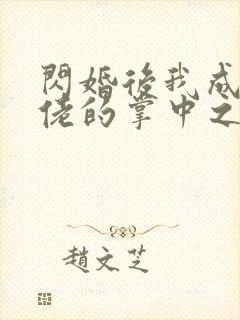 閃婚後我成
佬的掌中之
趙文芝